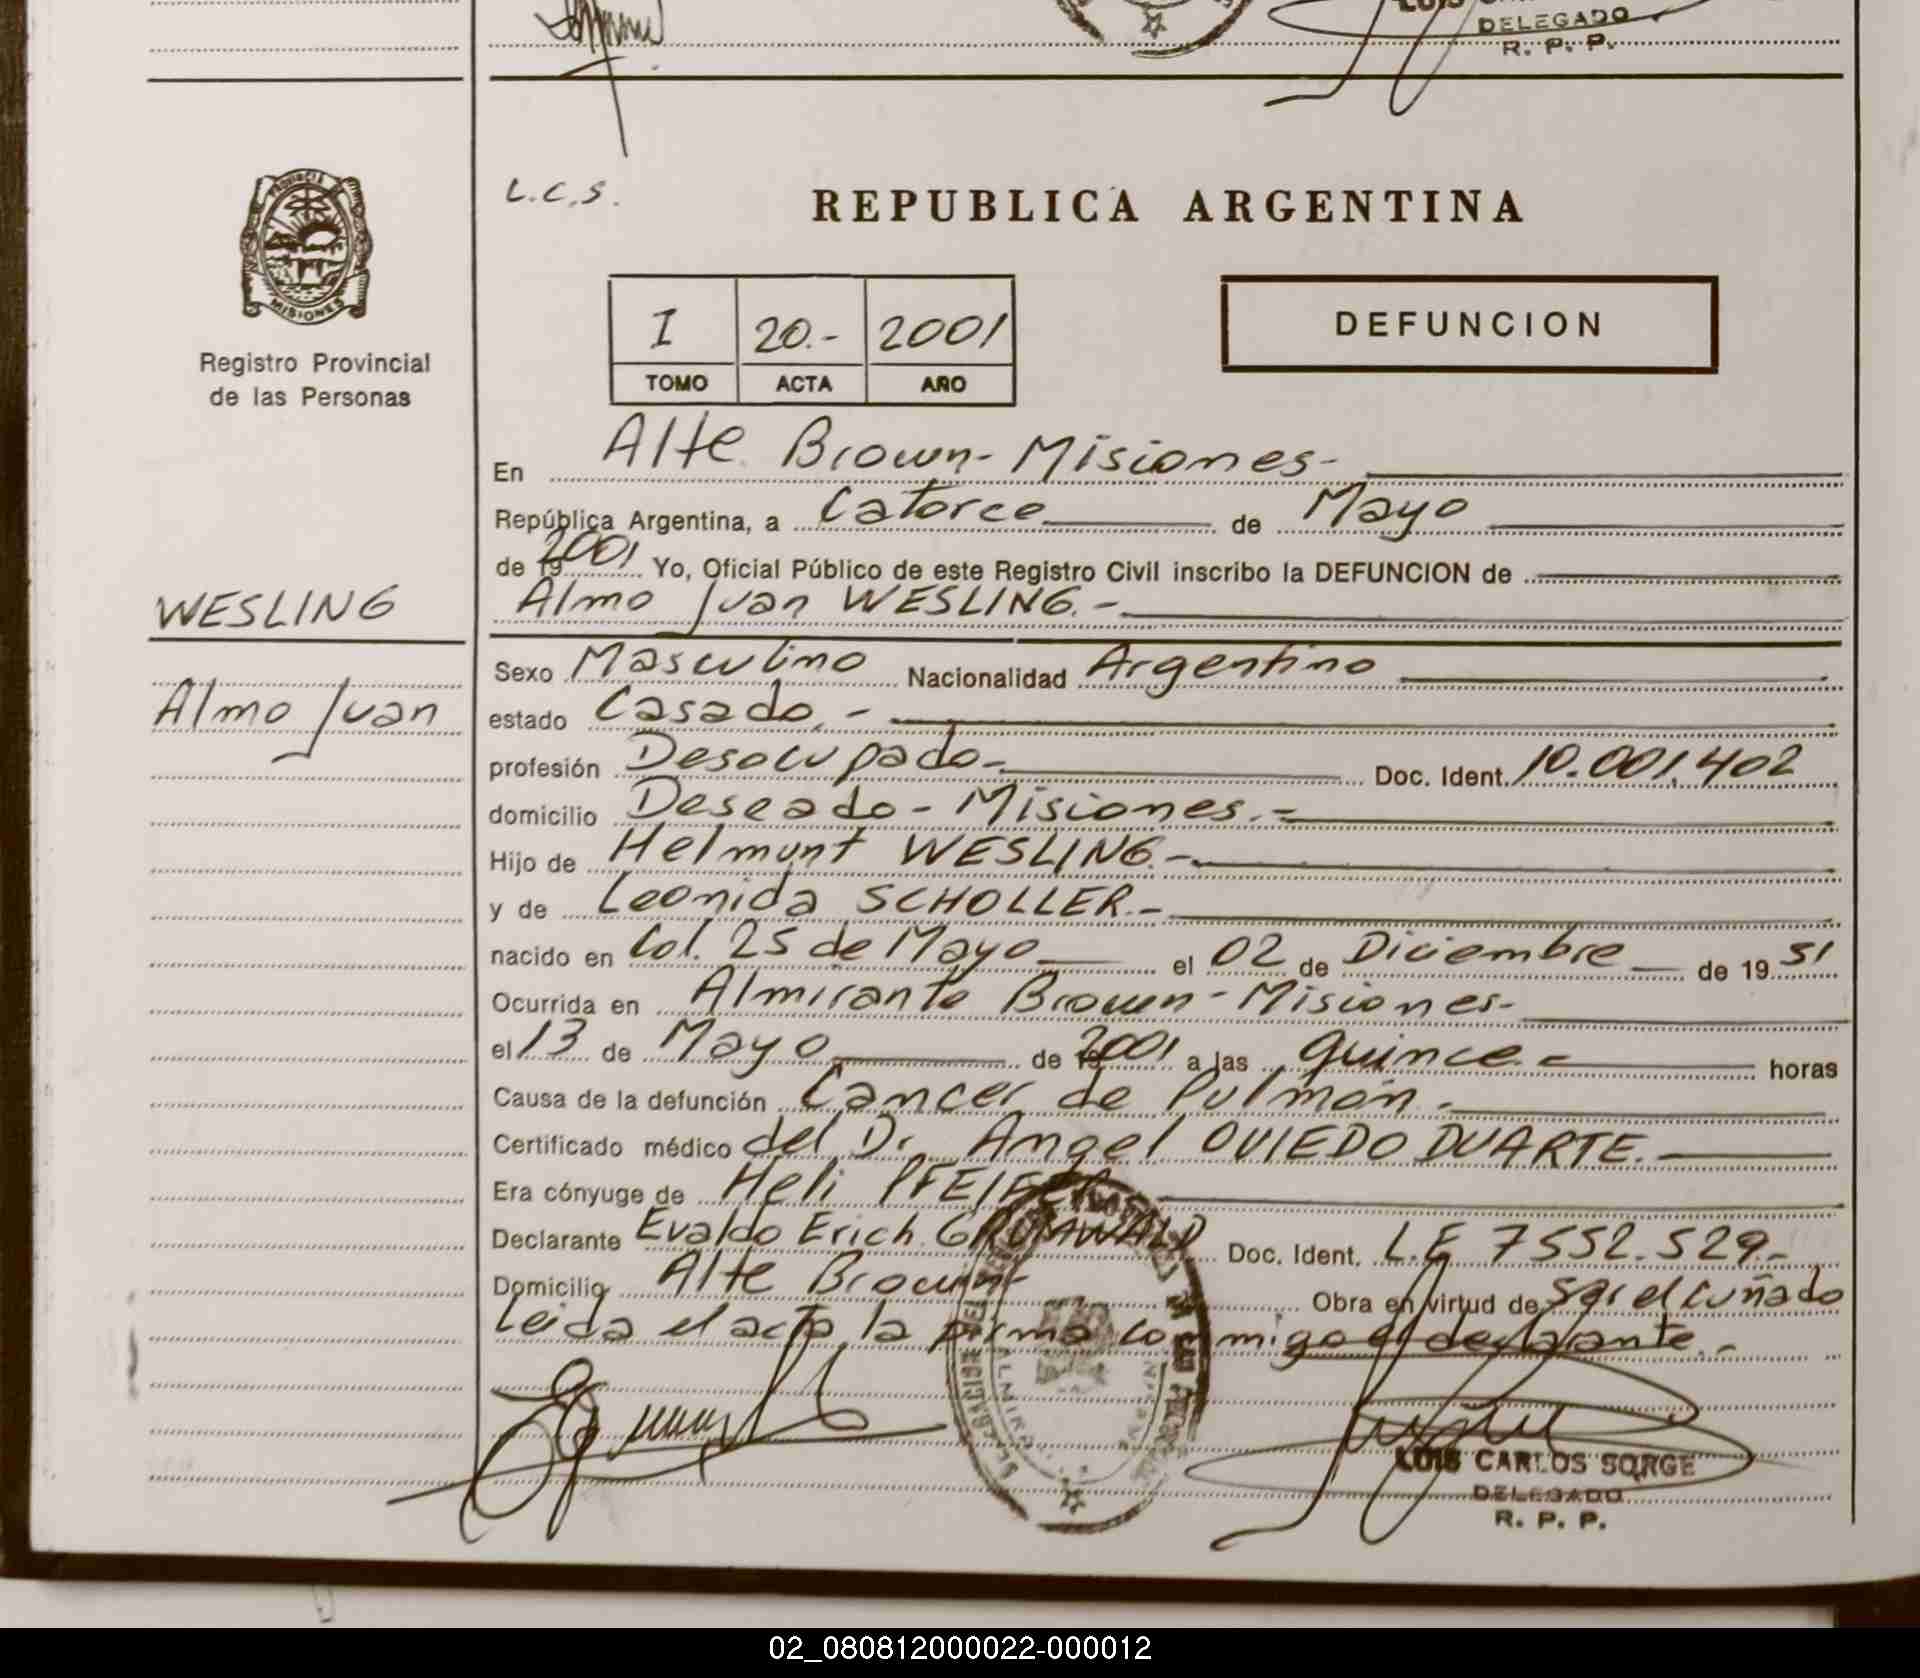 LUIS
DELEGADO
R. P. P.
PROVINCIA
MISIONES
Registro Provincial
de las Personas
L.C.S.
REPUBLICA ARGENTINA
I 20.- 2001
TOMO ACTA AÑO
DEFUNCION
En Alte. Brown- Misiones-
República Argentina, a Catorce de Mayo
de 19 2001 Yo, Oficial Público de este Registro Civil inscribo la DEFUNCION de
WESLING
Almo Juan WESLING.-
Almo Juan
Sexo Masculino Nacionalidad Argentino
estado Casado.-
profesión Desocupado- Doc. Ident. 10.001.402
domicilio Deseado- Misiones.-
Hijo de Helmunt WESLING.-
y de Leonida SCHOLLER.-
nacido en Col. 25 de Mayo el 02 de Diciembre de 19 51
Ocurrida en Almirante Brown- Misiones-
el 13 de Mayo de 19 2001 a las quince.- horas
Causa de la defunción Cancer de Pulmón.-
Certificado médico del Dr. Angel OVIEDO DUARTE.
Era cónyuge de Heli PFEIFER
Declarante Evaldo Erich GRUNWALD Doc. Ident. L.E 7552.529.-
Domicilio Alte Brown- Obra en virtud de ser el cuñado
Leida el acta la firma conmigo el declarante.-
LUIS CARLOS SORGE
DELEGADO
R. P. P.
02_080812000022-000012